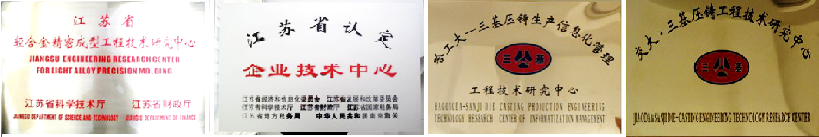 江苏省
轻合金精密成型工程技术研究中心
JIANGSU ENGINEERING RESEARCH CENTER
FOR LIGHT ALLOY PRECISION MOLDING
江苏省科学技术厅 江苏省财政厅
JIANGSU DEPARTMENT OF SCIENCE AND TECHNOLOGY JIANGSU DEPARTMENT OF FINANCE
江苏省认定
企业技术中心
江苏省经济和信息化委员会 江苏省发展和改革委员会
江苏省科学技术厅 江苏省财政厅 江苏省国家税务局
江苏省地方税务局 中华人民共和国南京海关
哈工大一三基压铸生产信息化管理
工程技术研究中心
TECHNOLOGY RESEARCH CENTER OF INFORMATIZATION MANAGEMENT
交大·三基压铸工程技术研究中心